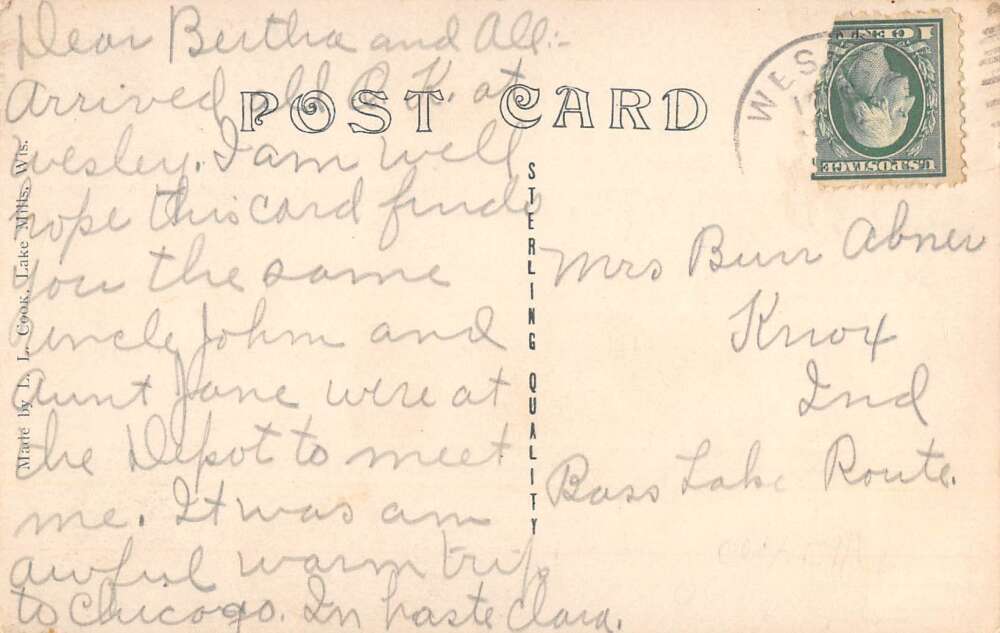 Dear Bertha and All:-
Arrived all O.K. at
Wesley. I am well
hope this card finds
you the same
Uncle John and
Aunt Jane were at
the Depot to meet
me. It was am
awful warm trip
to Chicago. In haste Clara.
POST CARD
Made by L. L. Cook, Lake Mills, Wis.
STERLING QUALITY
WES
1 CENT 1
U.S. POSTAGE
Mrs Burr Abner
Knox
Ind
Bass Lake Route.